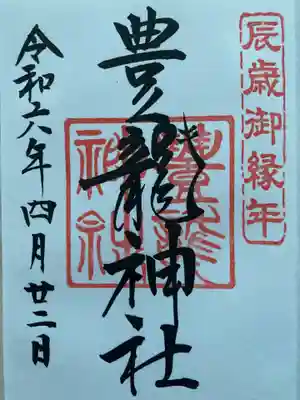 辰歳御縁年
豊龍神社
令和六年四月廿二日